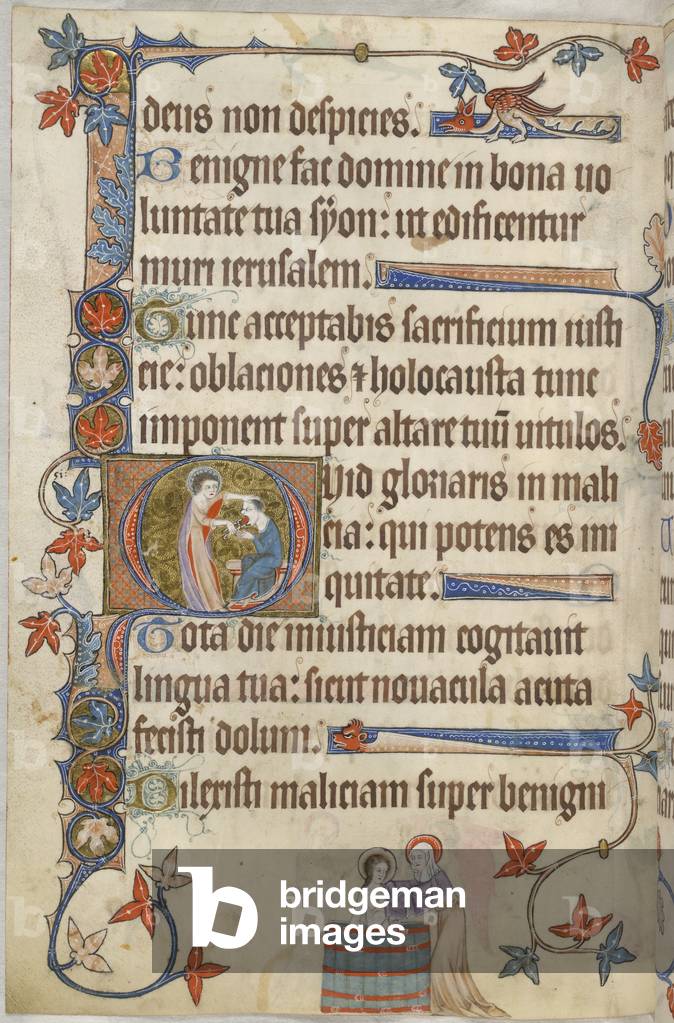 deus non despicies.
Benigne fac domine in bona uo
luntate tua syon: ut edificentur
muri ierusalem.
Tunc acceptabis sacrificium iusti
cie: oblaciones ⁊ holocausta tunc
imponent super altare tuū uitulos.
Quid gloriaris in mali
cia: qui potens es ini
quitate.
Tota die iniusticiam cogitauit
lingua tua: sicut nouacula acuta
fecisti dolum.
Dilexisti maliciam super benigni
bridgeman
images